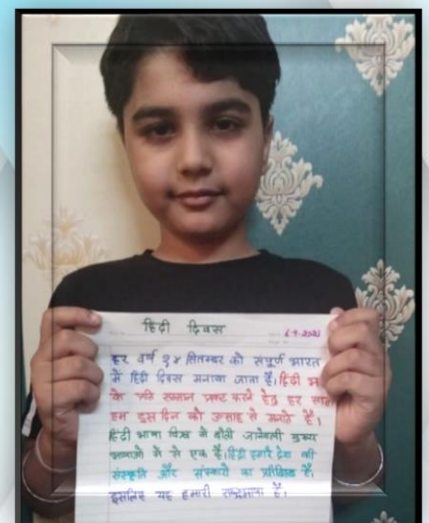 हिंदी दिवस 6-9-2021
हर वर्ष १४ सितम्बर को संपूर्ण भारत
में हिंदी दिवस मनाया जाता है। हिंदी
के प्रति सम्मान प्रकट करने हेतु हर साल
हम इस दिन को उत्साह से मनाते हैं।
हिंदी भाषा विश्व में बोली जानेवाली मुख्य
भाषाओं में से एक है। हिंदी हमारे देश की
संस्कृति और संस्कारों का प्रतिबिंब है,
इसलिए यह हमारी राष्ट्रभाषा है।